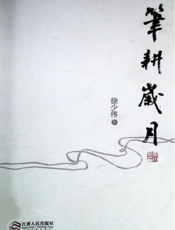 筆耕歲月
徐少伟 著
江西人民出版社